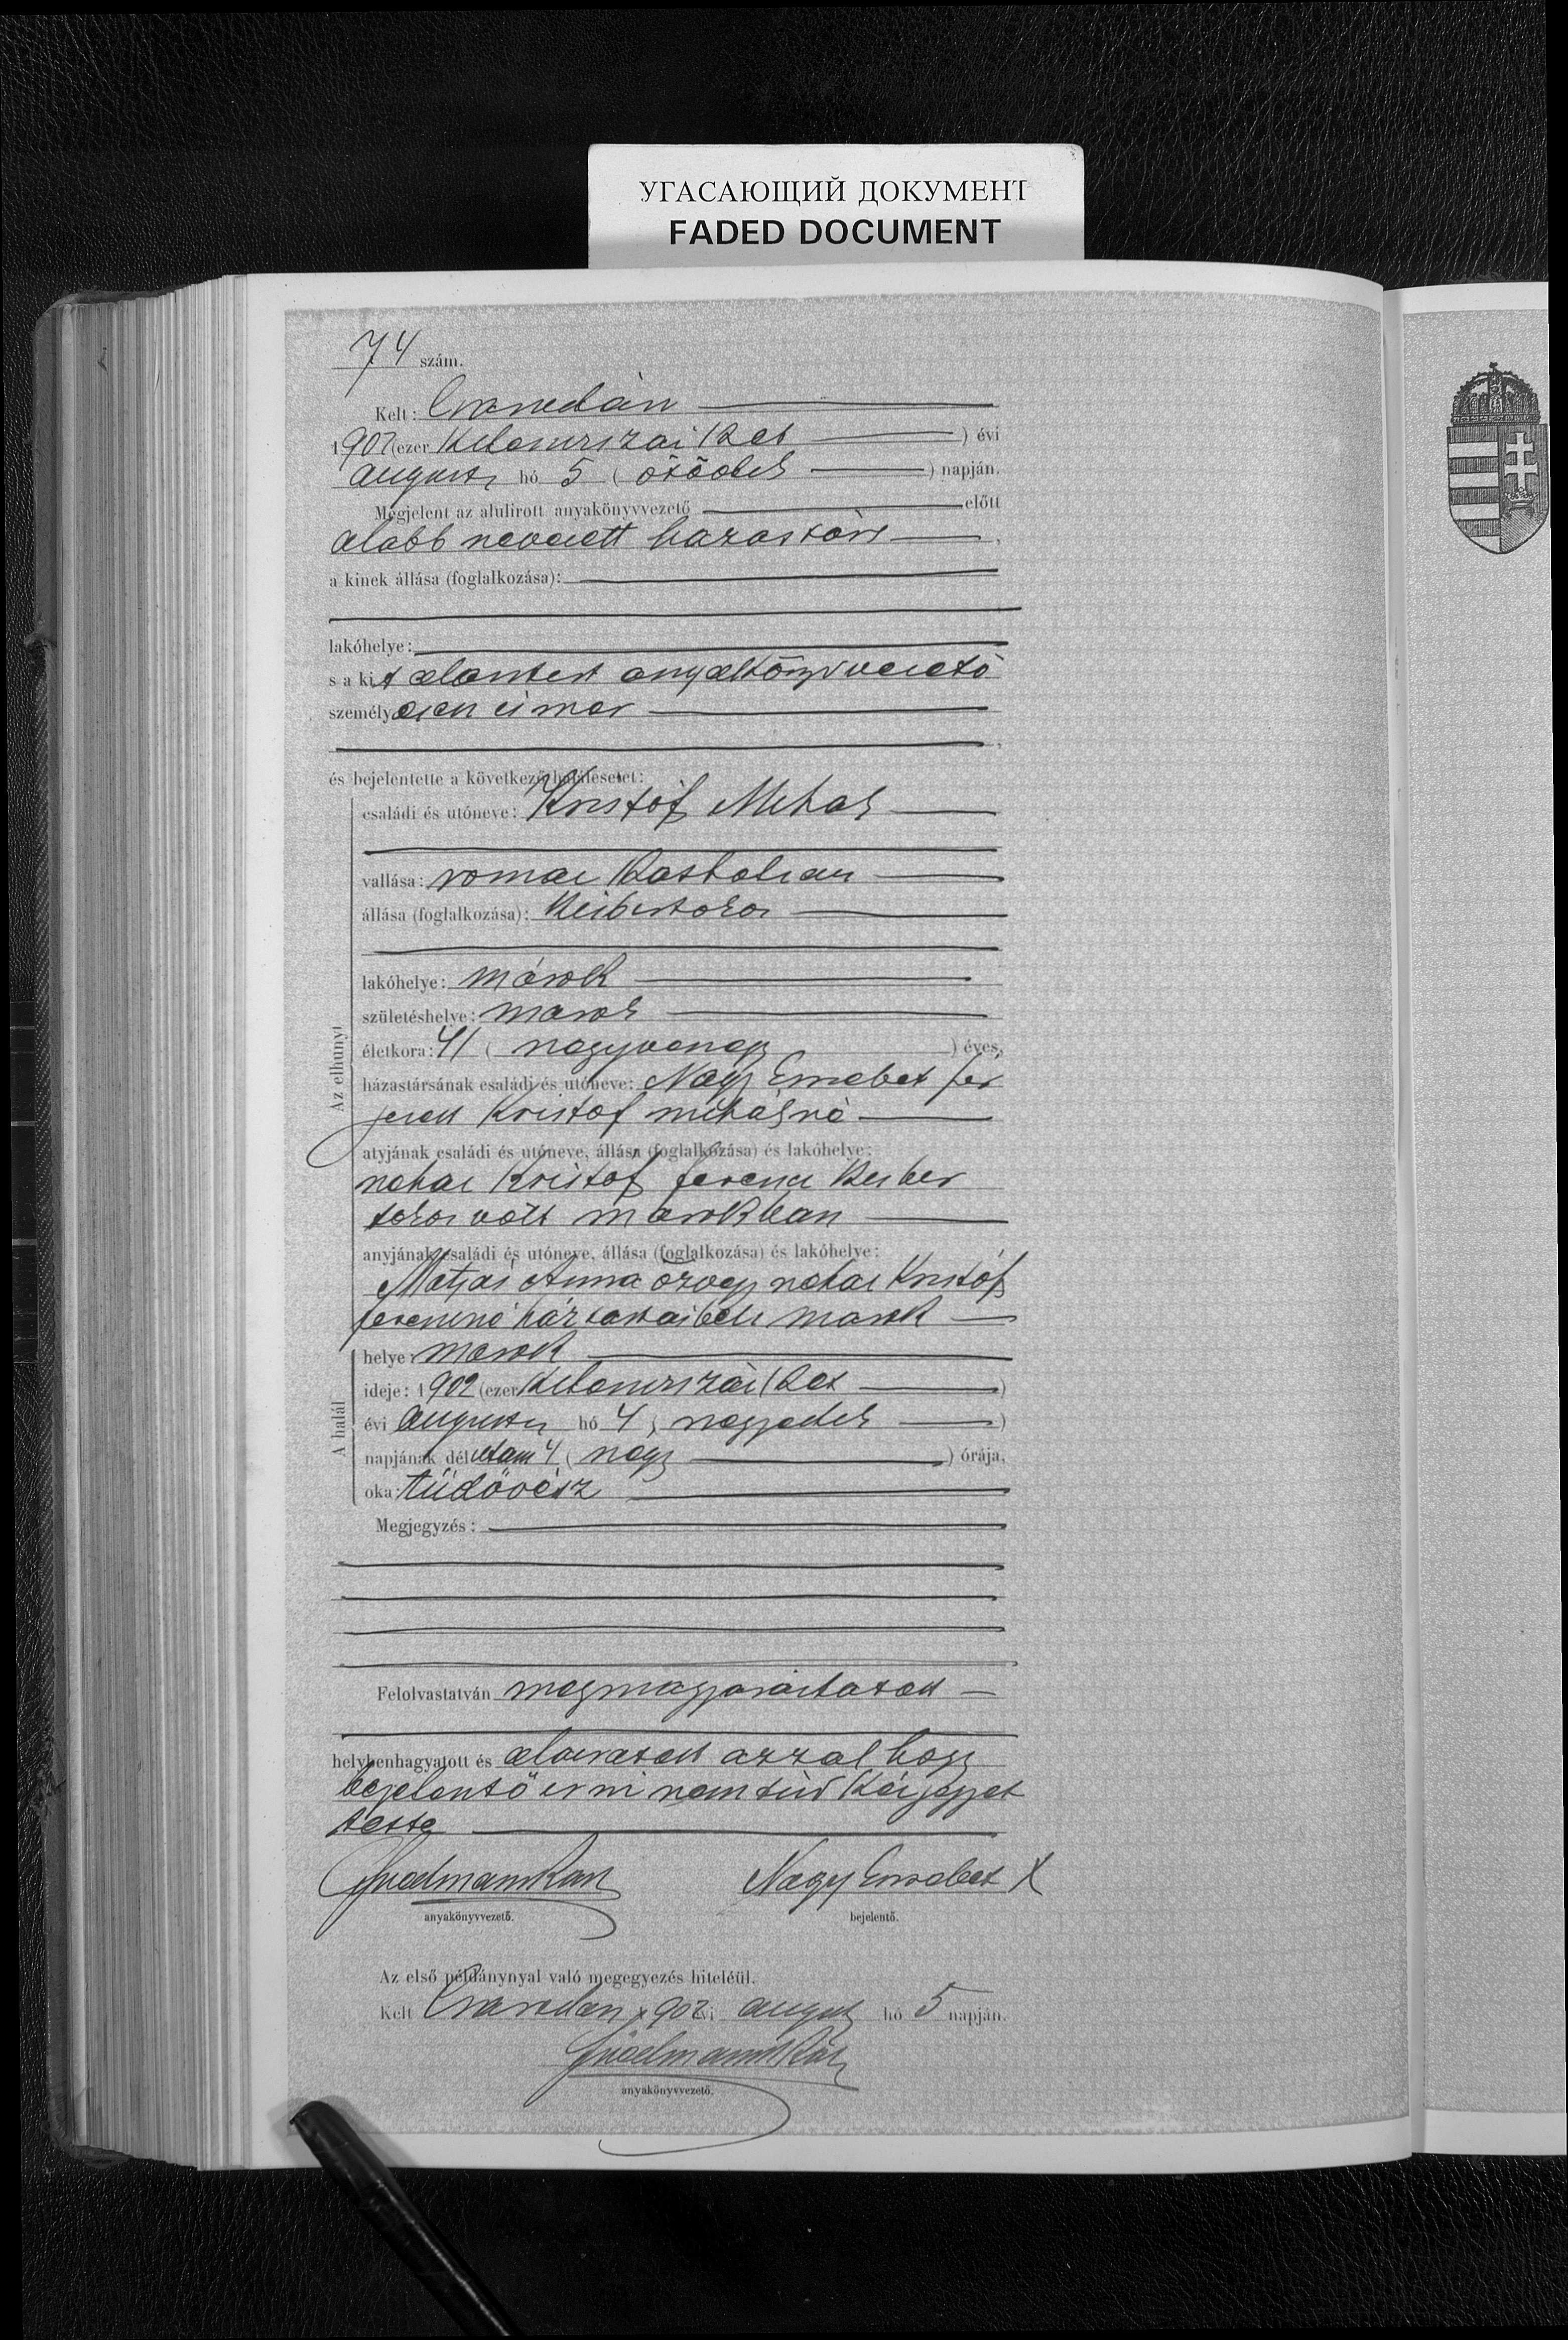 УГАСАЮЩИЙ ДОКУМЕНТ
FADED DOCUMENT
74 szám.
Kelt: Csarodán
1902 (ezer kilenczszáz két ) évi
auguszt hó 5 ( ötödik ) napján.
Megjelent az alulirott anyakönyvvezető előtt
alább nevezett házastárs
a kinek állása (foglalkozása):
lakóhelye:
s a kit alantirt anyakönyvvezető
személyesen ismer
és bejelentette a következő halálesetet:
Az elhunyt
családi és utóneve: Kristóf Mihály
vallása: romai katholicus
állása (foglalkozása):
lakóhelye: márok
születéshelye: marok
életkora: 41 ( negyvenegy ) éves,
házastársának családi és utóneve: Nagy Erzsebet fér
jezett Kristof mihályné
atyjának családi és utóneve, állása (foglalkozása) és lakóhelye:
nehai Kristof ferencz
volt marokban
anyjának családi és utóneve, állása (foglalkozása) és lakóhelye:
Matjas Anna özvegy nehai Kristóf
ferenczné háztartásbeli marok
A halál
helye: marok
ideje: 1902 (ezer kilenczszáz két )
évi auguszt hó 4 ( negyedik )
napjának délutan 4 ( negy ) órája,
oka: tüdővész
Megjegyzés:
Felolvastatván megmagyaráztatott
helybenhagyatott és aláiratott azzal hogy
bejelentő irni nem tud kézjegyet
tette
anyakönyvvezető.
Nagy Erzsebet X
bejelentő.
Az első példánynyal való megegyezés hiteléül.
Kelt Csarodan 1902 évi auguszt hó 5 napján.
anyakönyvvezető.